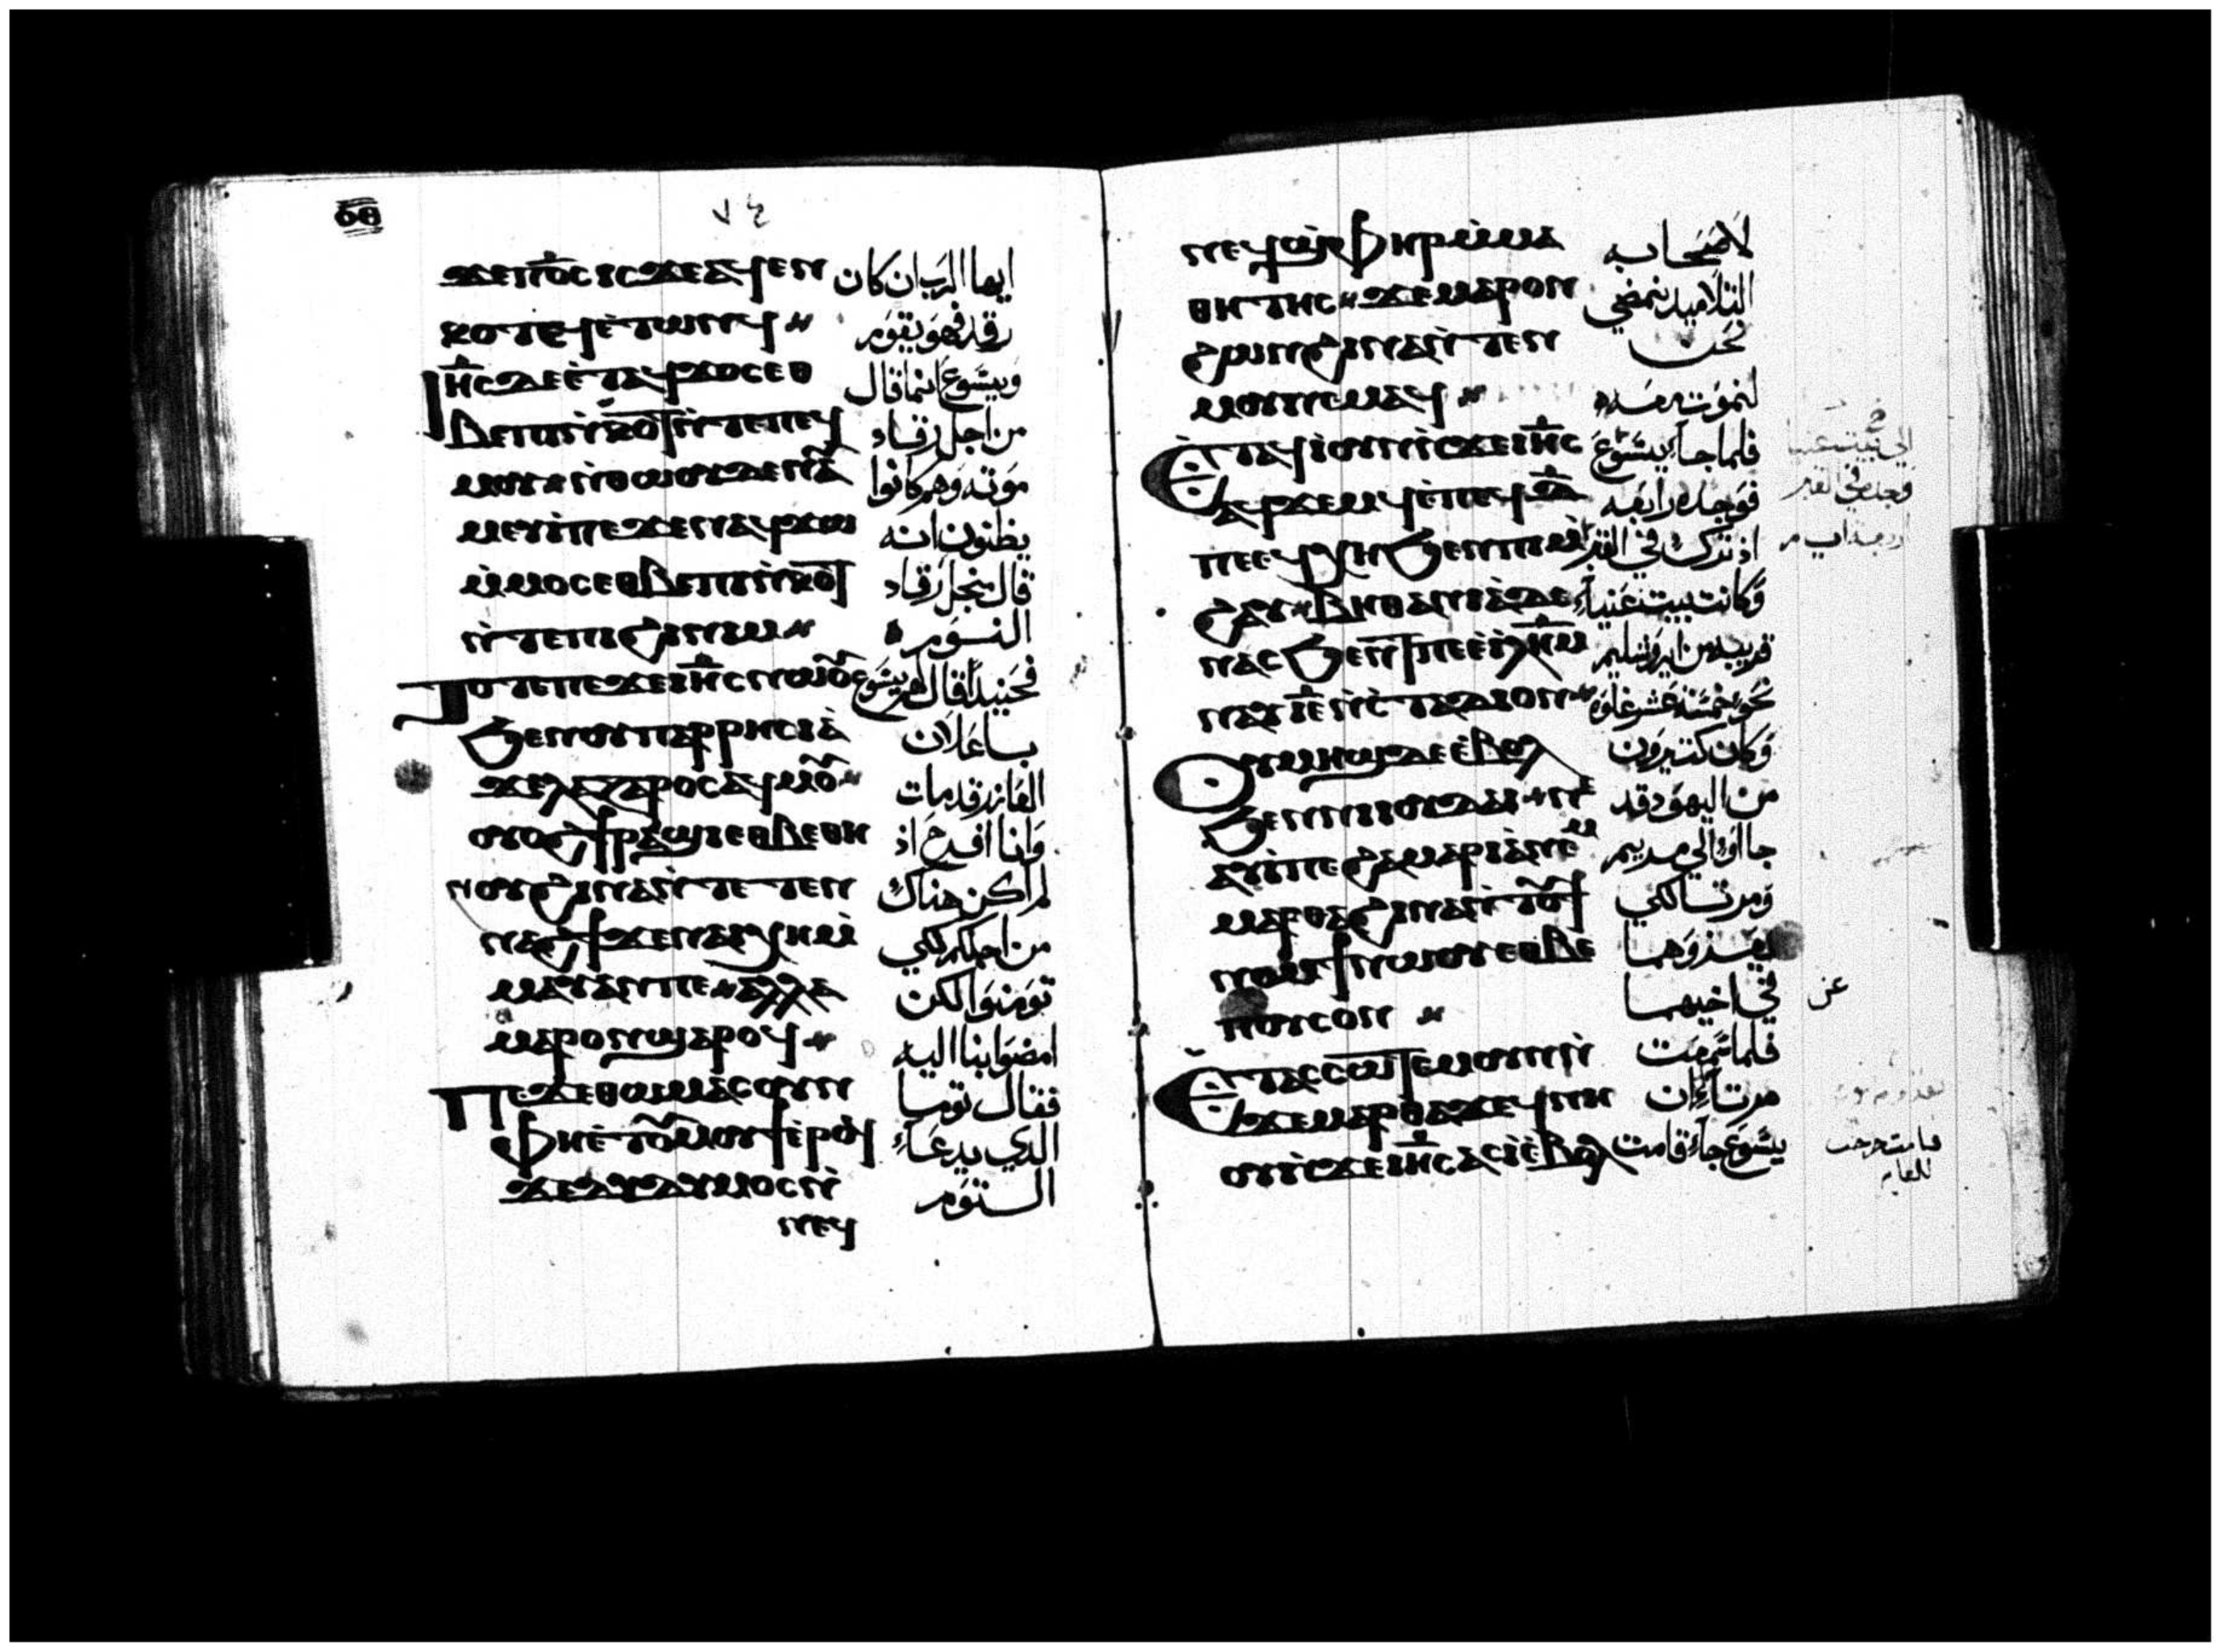 ٧٤
ϫⲉⲡⲟ̅ⲥ̅ⲓⲥϫⲉⲁϥⲉⲛ ايها الربان كان
ⲕⲟⲧⲓⲉϥⲉ̀ⲧⲱⲛϥ رقد فهو يقوم
ⲓⲏ̅ⲥ̅ⲇⲉⲉ̀ⲧⲁϥϫⲟⲥⲉⲑ ويشوع انما قال
ⲃⲉⲡⲓⲛ̀ⲕⲟϯⲛ̀ⲧⲉⲡⲉϥ من اجل رقاد
ⲙⲟⲩ ⲛ̀ⲑⲱⲟⲩⲇⲉⲛⲁ موته وهم كانوا
ⲙⲉⲩⲓ̀ⲡⲉϫⲉⲛⲁϥϫⲱ يظنون انه
ⲙ̀ⲙⲟⲥⲉⲑⲃⲉⲡⲓⲛ̀ⲕⲟϯ قال منجل رقاد
ⲛ̀ⲧⲉⲡⲓϩⲓⲛⲓⲙ النوم
ⲧⲟⲧⲉⲡⲉϫⲉⲓⲏ̅ⲥ̅ⲛⲱⲟⲩ فحينيذ قال لهم يشوع
ϧⲉⲛⲟⲩⲡⲁⲣⲣⲏⲥⲓⲁ̀ باعلان
ϫⲉⲗⲁⲍⲁⲣⲟⲥⲁϥⲙⲟⲩ العازر قد مات
ⲟⲩⲟϩϯⲣⲁϣⲓⲉⲑⲃⲉⲑⲏ وانا افرح اذ
ⲛⲟⲩϩⲓⲛⲁⲛ̀ⲧⲉⲧⲉⲛ لم اكن هناك
ⲛⲁϩϯϫⲉⲛⲁⲓⲭⲏⲙ̀ من اجلكم لكي
ⲙⲁⲩⲁⲛⲡⲉ ⲁⲗⲗⲁ تومنوا لكن
ⲙⲁⲣⲟⲛϣⲁⲣⲟϥ امضوا بنا اليه
ⲡⲉϫⲉⲑⲱⲙⲁⲥⲟⲩⲛ فقال توما
ⲫⲏⲉ̀ⲧⲟⲩⲙⲟⲩϯⲉ̀ⲣⲟϥ الذي يدعا
ϫⲉⲇⲩⲇⲩⲙⲟⲥⲛ̀ التوم
ⲛⲉϥ
ⲛⲉϥϣ̀ⲫⲏⲣⲙ̀ⲙⲁ لاصحابه
ⲑⲏⲧⲏⲥ ϫⲉⲙⲁⲣⲟⲛ التلاميد نمضي
ϩⲱⲛϩⲓⲛⲁⲛ̀ⲧⲉⲛ نحن
ⲙⲟⲩⲛⲉⲙⲁϥ لنموت معه
ⲉ̀ⲧⲁϥⲓ̀ⲟⲩⲛⲛ̀ϫⲉⲓⲏ̅ⲥ̅ فلما جاء يشوع
ⲁϥϫⲉⲙϥⲉ̀ⲡⲉϥⲇ̅ فوجده رابعه
ⲡⲉⲉϥⲭⲏϧⲉⲛⲡⲓⲙ̀ اذ ترك في القبر
ϩⲁⲩ ⲃⲏⲑⲁⲛⲓⲁ̀ⲇⲉ وكانت بيت عنياء
ⲛⲁⲥϧⲉⲛⲧⲡⲉⲉ̀ⲓⲗⲏⲙ قريبه من ايروشليم
ⲛⲁⲩⲓ̅ⲉ̅ⲛ̀ⲥ̀ⲧⲁⲇⲓⲟⲛ نحو خمسة عشر غلوه
ⲟⲩⲙⲏϣⲇⲉⲉ̀ⲃⲟⲗ وكان كتيرون
ϧⲉⲛⲛⲓⲓⲟⲩⲇⲁⲓ ⲛⲉ من اليهود قد
ⲁⲩⲓ̀ⲡⲉϩⲁⲙⲁⲣⲓⲁ̀ⲛⲉⲙ جااوا الي مريم
ⲙⲁⲣⲑⲁϩⲓⲛⲁⲛ̀ⲧⲟⲩϯ ومرتا لكي
ⲛⲟⲙϯⲛⲱⲟⲩⲉⲑⲃⲉ يعزوهما
ⲡⲟⲩⲥⲟⲛ في اخيهما عن
ⲉ̀ⲧⲁⲥⲥⲱⲧⲉⲙⲟⲩⲛⲛ̀ فلما سمعت
ϫⲉⲙⲁⲣⲑⲁϫⲉϥⲛⲏ مرتاء ان
ⲟⲩⲛ̀ϫⲉⲓⲏ̅ⲥ̅ⲁⲥⲓ̀ⲉ̀ⲃⲟⲗ يشوع جاء قامت